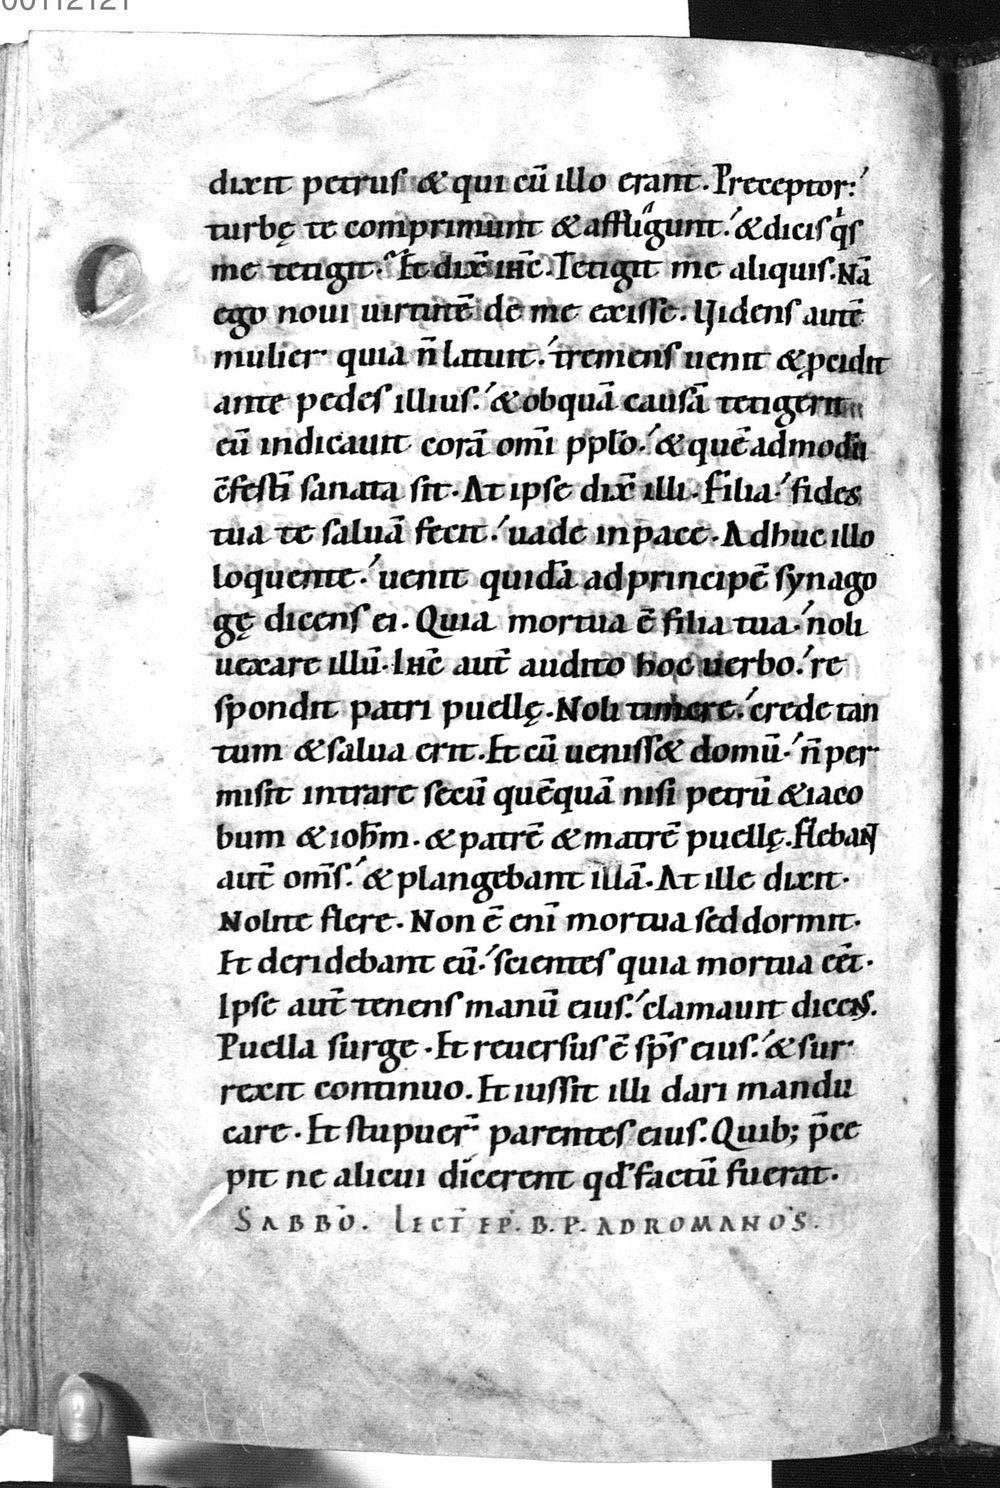 00112121
dixit petrus & qui cū illo erant. Preceptor:
turbę te comprimunt & affligunt. & dicis qͥs
me tetigit. Et dix̄ ihc̄. Tetigit me aliquis. Nā
ego noui uirtutē de me exisse. Uidens autē
mulier quia n̄ latuit. tremens uenit & ꝓcidit
ante pedes illius. & ob quā causā tetigerit
eū indicauit corā om̄i pplo. & quē admodū
cōfestī sanata sit. At ipse dix̄ illi. Filia. fides
tua te saluā fecit. uade in pace. Adhuc illo
loquente. uenit quidā ad principē synago
gę dicens ei. Quia mortua ē filia tua. noli
uexare illū. Ihc̄ aut̄ audito hoc uerbo. re
spondit patri puellę. Noli timere. crede tan
tum & salua erit. Et cūueniss& domū. n̄ per
misit intrare secū quēquā nisi petrū & iaco
bum & ioh̄m. & patrē & matrē puellę. Flebant
aut̄ om̄s. & plangebant illā. At ille dixit.
Nolite flere. Non ē enī mortua sed dormit.
Et deridebant eū. scientes quia mortua eēt.
Ipse aut̄ tenens manū eius. clamauit dicens.
Puella surge. Et reuersus ē sp̄s eius. & sur
rexit continuo. Et iussit illi dari mandu
care. Et stupuer̄ parentes eius. Quib; p̄ce
pit ne alicui dicerent qđ factū fuerat.
SABBO. LECT̄ EP̄. B. P. AD ROMANOS.